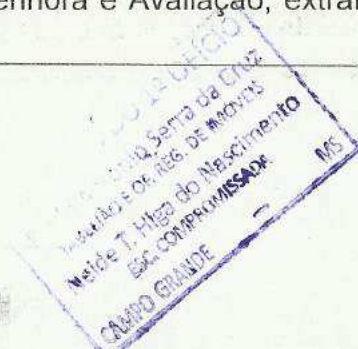 e Avaliação, extra
1º OFÍCIO
Serra da Cruz
E OF. REG. DE IMÓVEIS
Neide T. Higa do Nascimento
ESC. COMPROMISSADA
CAMPO GRANDE - MS